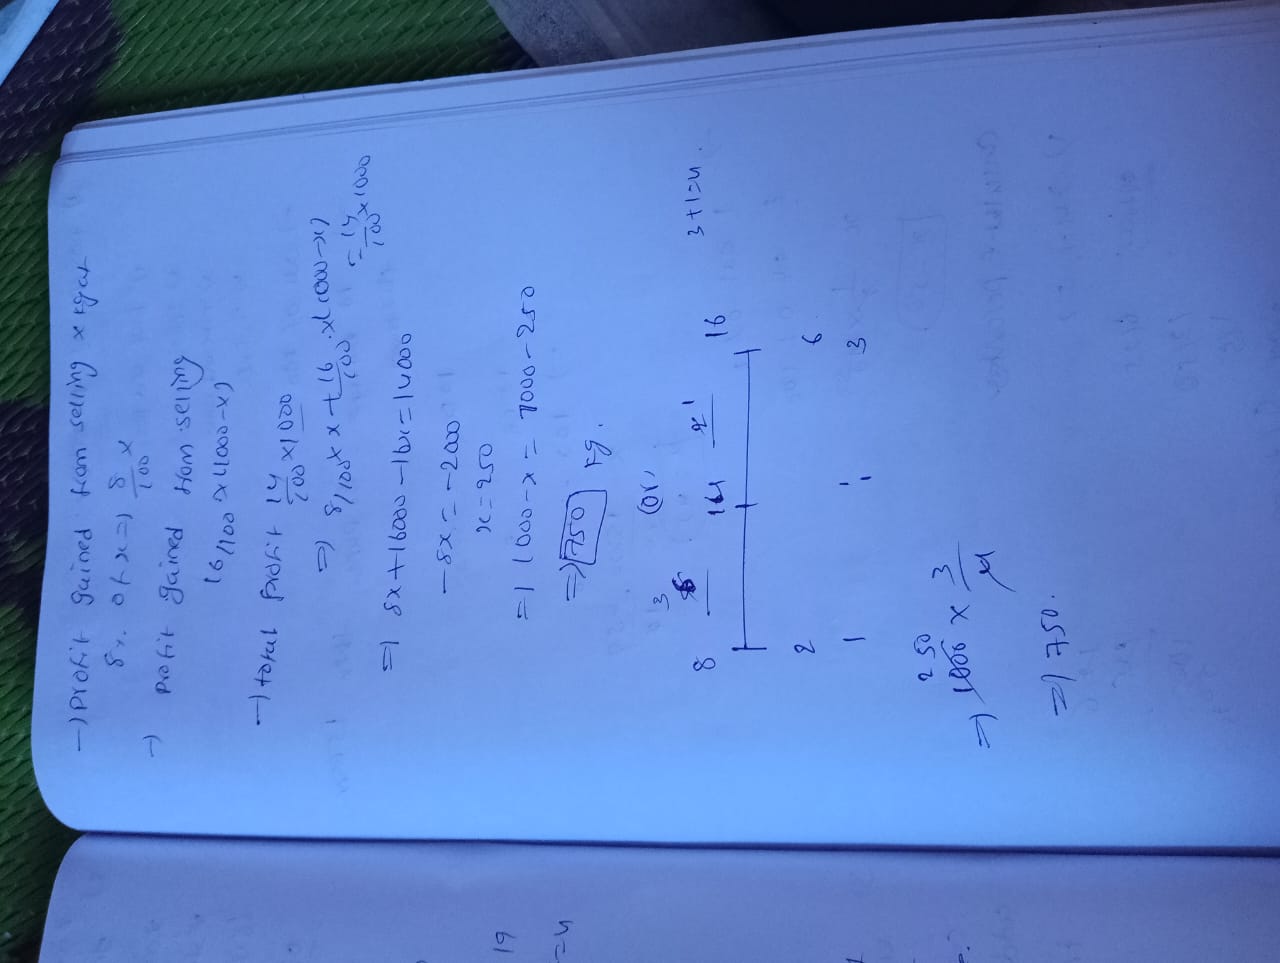 → Profit gained from selling x kg at
8% of x ⇒ 8/100 x
→ profit gained from selling
16/100 x (1000-x)
→ total profit 14/100 x 1000
⇒ 8/100 x x + 16/100 x (1000-x)
= 14/100 x 1000
⇒ 8x + 16000 - 16x = 14000
-8x = -2000
x = 250
⇒ 1000-x = 1000-250
⇒ 750 kg.
(or)
3 1
8 14 16 3+1=4.
2 6
1 : 3
250
⇒ 1000 x 3/4
⇒ 750.
19
=4